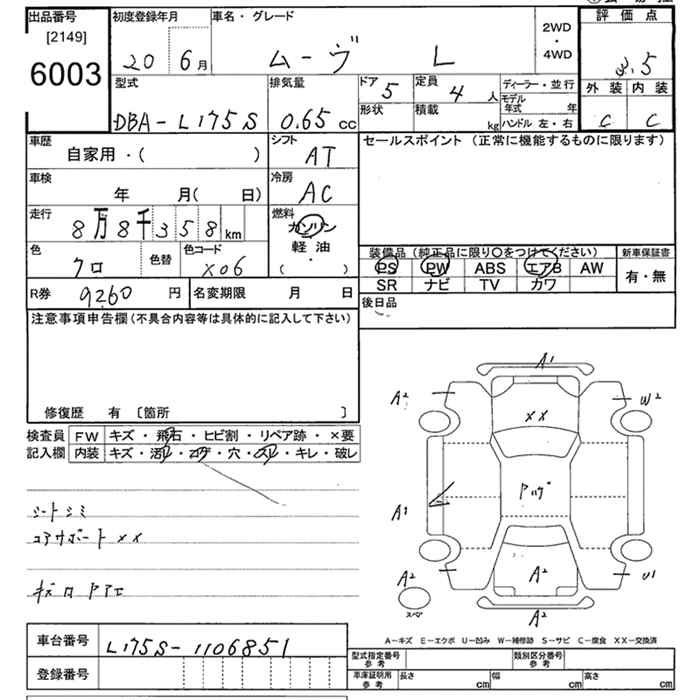 出品番号
[2149]
6003
初度登録年月
20 6月
車名・グレード
ムーヴ L
2WD
・
4WD
評価点
3.5
外装 内装
C C
型式
DBA-L175S
排気量
0.65 cc
ドア 5
形状
定員 4 人
積載 kg
ディーラー・並行
モデル年式 年
ハンドル 左・右
車歴
自家用・( )
シフト
AT
セールスポイント (正常に機能するものに限ります)
車検
年 月( 日)
冷房
AC
走行
8万8千358 km
燃料
ガソリン
軽油
( ・ )
色
クロ
色替
色コード
X06
装備品 (純正品に限り○をつけてください)
PS PW ABS エアB AW
SR ナビ TV カワ
新車保証書
有・無
R券 9260 円
名変期限 月 日
後日品
注意事項申告欄(不具合内容等は具体的に記入して下さい)
修復歴 有 [箇所 ]
検査員
記入欄
FW キズ・飛石・ヒビ割・リペア跡・×要
内装 キズ・汚れ・コゲ・穴・スレ・キレ・破レ
シートシミ
コアサポートXX
A1
A2
W2
XX
A1
A2
A2
U1
A2
スペア
A-キズ E-エクボ U-凹み W-補修跡 S-サビ C-腐食 XX-交換済
車台番号
L175S-1106851
登録番号
型式指定番号
参考
類別区分番号
参考
車庫証明用
参考
長さ cm
幅 cm
高さ cm